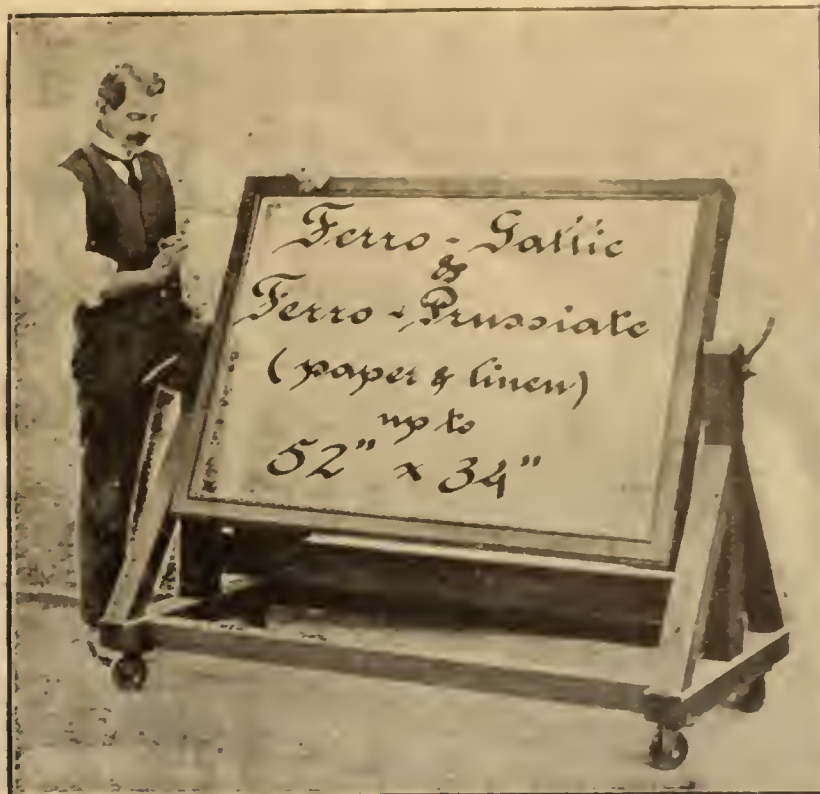 Ferro-Gallic
&
Ferro-Prussiate
(paper & linen)
up to
52" x 34"